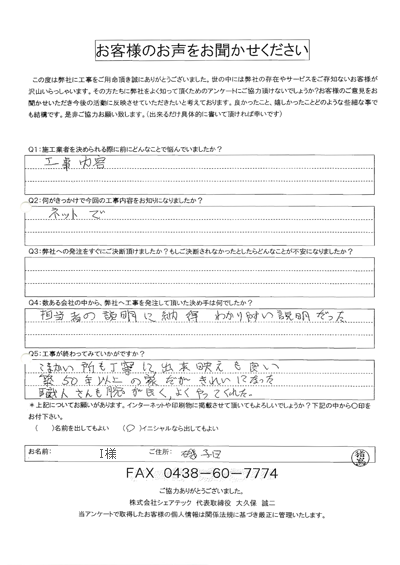 お客様のお声をお聞かせください
この度は弊社に工事をご用命頂き誠にありがとうございました。世の中には弊社の存在やサービスをご存知ないお客様が
沢山いらっしゃいます。その方たちに弊社をよく知って頂くためのアンケートにご協力頂けないでしょうか?お客様のご意見をお
聞かせいただき今後の活動に反映させていただきたいと考えております。良かったこと、嬉しかったことどのような些細な事で
も結構です。是非ご協力お願い致します。(出来るだけ具体的に書いて頂ければ幸いです)
Q1:施工業者を決められる際に前にどんなことで悩んでいましたか?
工事内容
Q2:何がきっかけで今回の工事内容をお知りになりましたか?
ネットで
Q3:弊社への発注をすぐにご決断頂けましたか?もしご決断されなかったとしたらどんなことが不安になりましたか?
Q4:数ある会社の中から、弊社へ工事を発注して頂いた決め手は何でしたか?
担当者の説明に納得 わかり易い説明だった
Q5:工事が終わってみていかがですか?
こまかい所も丁寧に出来映えも良い
築50年以上の家だがきれいになった
職人さんも腕が良く、よくやってくれた。
*上記についてお願いがあります。インターネットや印刷物に掲載させて頂いてもよろしいでしょうか?下記の中から〇印を
お付下さい。
( )名前を出してもよい (〇)イニシャルなら出してもよい
お名前: I様 ご住所:
FAX 0438-60-7774
ご協力ありがとうございました。
株式会社シェアテック 代表取締役 大久保 誠二
当アンケートで取得したお客様の個人情報は関係法規に基づき厳正に管理いたします。